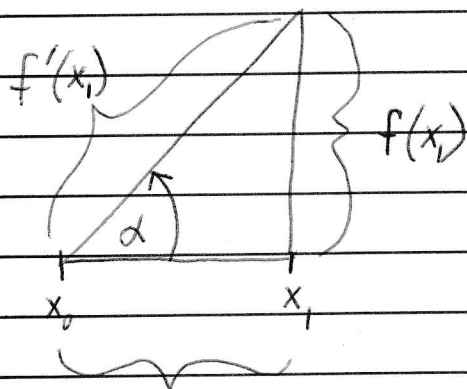 f'(x₁)
f(x₁)
α
x₀
x₁